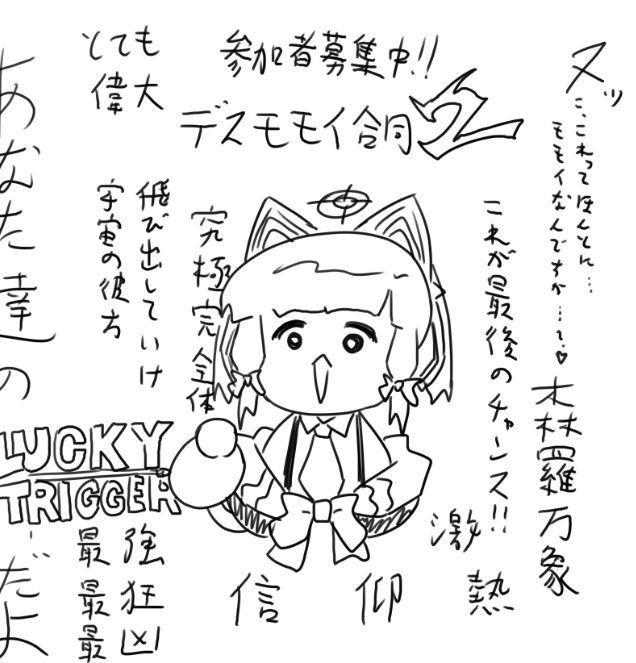 参加者募集中!!
デスモモイ合同2
とても
偉大
ヌッ
こ、これってほんとに…
モモイなんですか…?♡
森羅万象
これが最後のチャンス!!
激
熱
究極完全体
飛び出していけ
宇宙の彼方
あなた達の
だよ
LUCKY
TRIGGER
最強
最狂
最凶
信仰